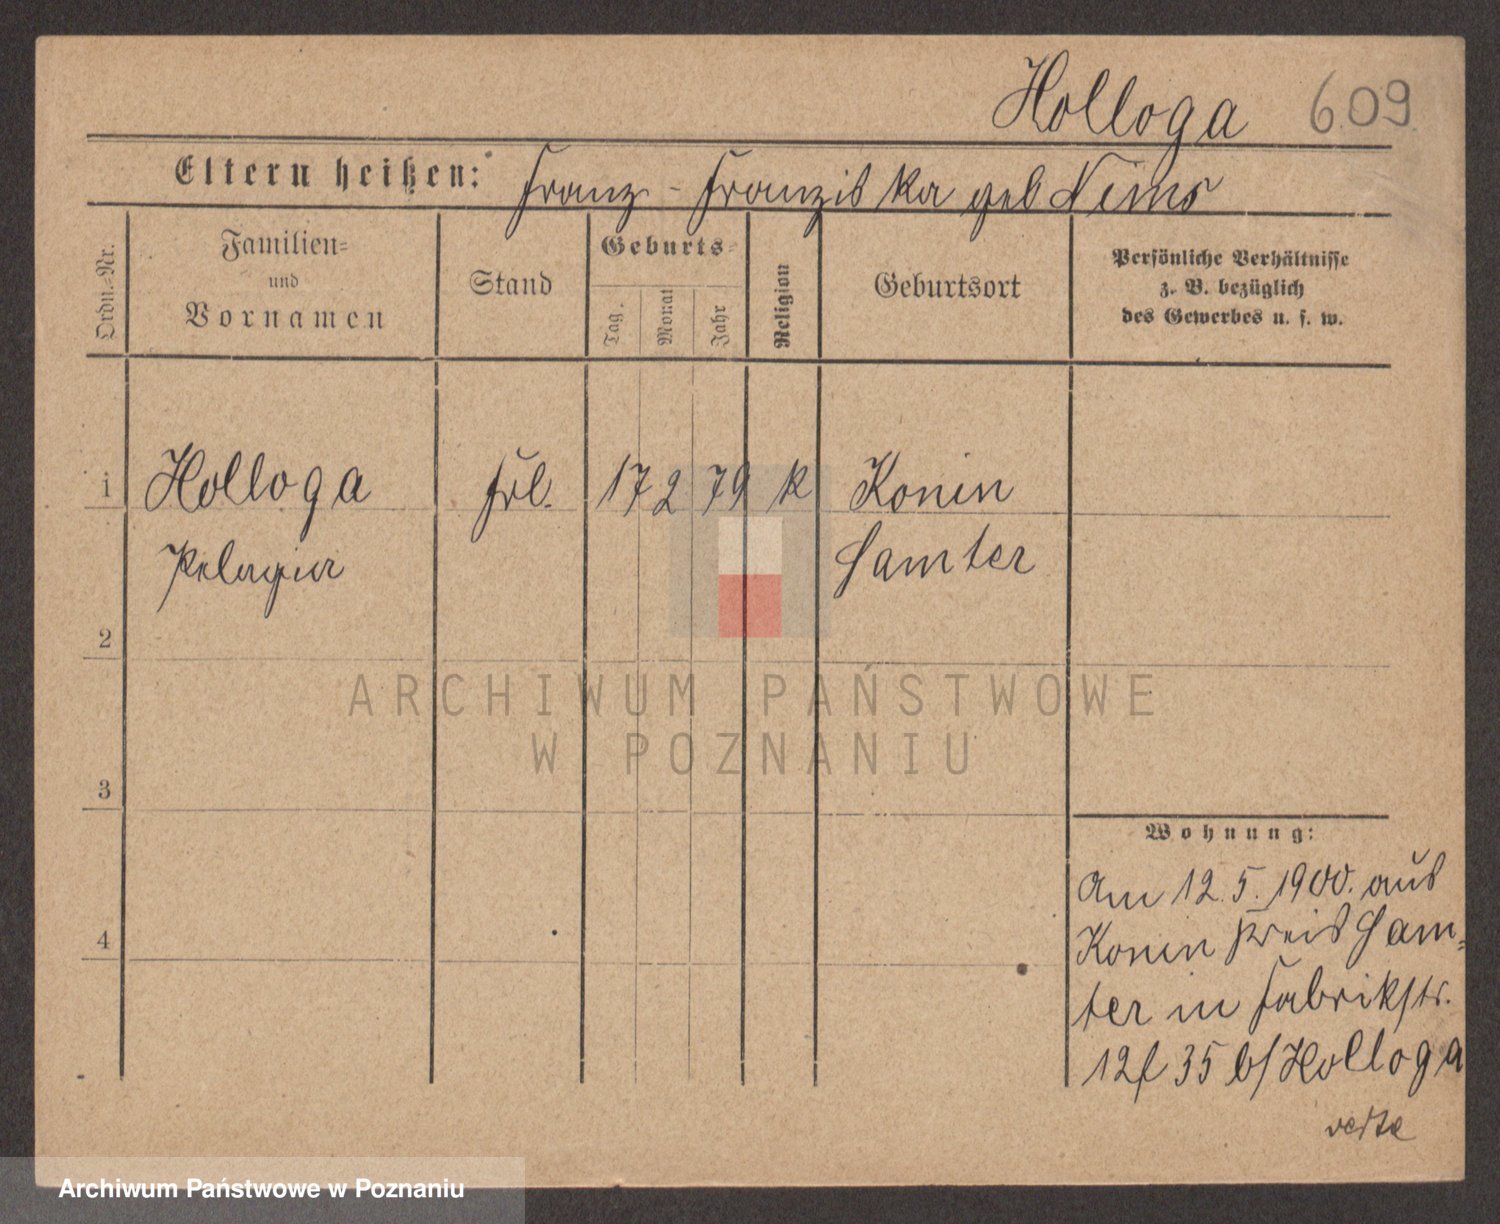 Holloga 609
Eltern heißen: Franz - Franziska geb Nims
Ordn.-Nr.
Familien-
und
Vornamen
Stand
Geburts-
Tag.
Monat
Jahr
Religion
Geburtsort
Persönliche Verhältnisse
z. B. bezüglich
des Gewerbes u. s. w.
1 Holloga Frl. 17 2 79 k Konin
Pelagia Samter
2
ARCHIWUM PAŃSTWOWE
W POZNANIU
3
Wohnung:
Am 12.5.1900. aus
4 Konin Kreis Sam-
ter in Fabrikstr.
35 b/ Holloga
verte
Archiwum Państwowe w Poznaniu